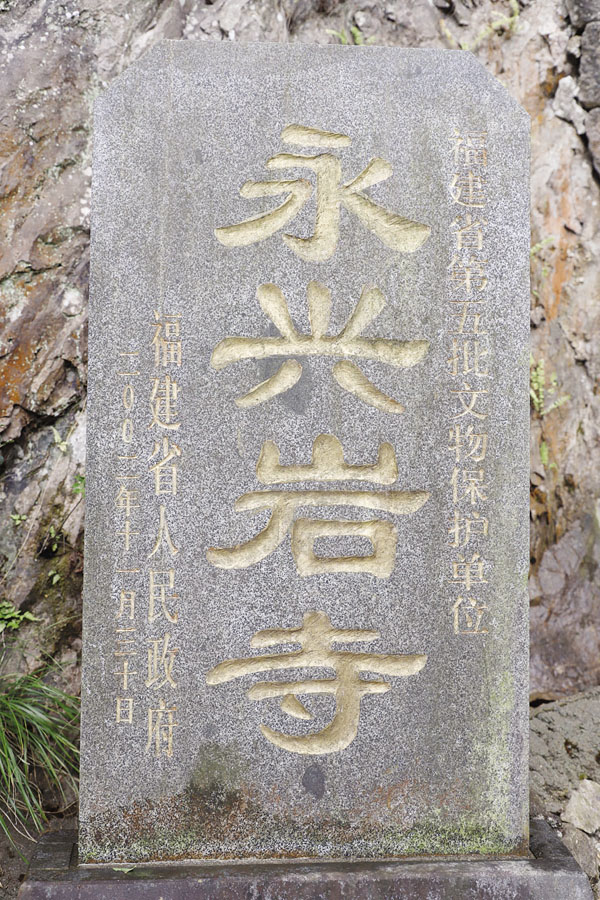 福建省第五批文物保护单位
永兴岩寺
福建省人民政府
二00二年十一月三十日